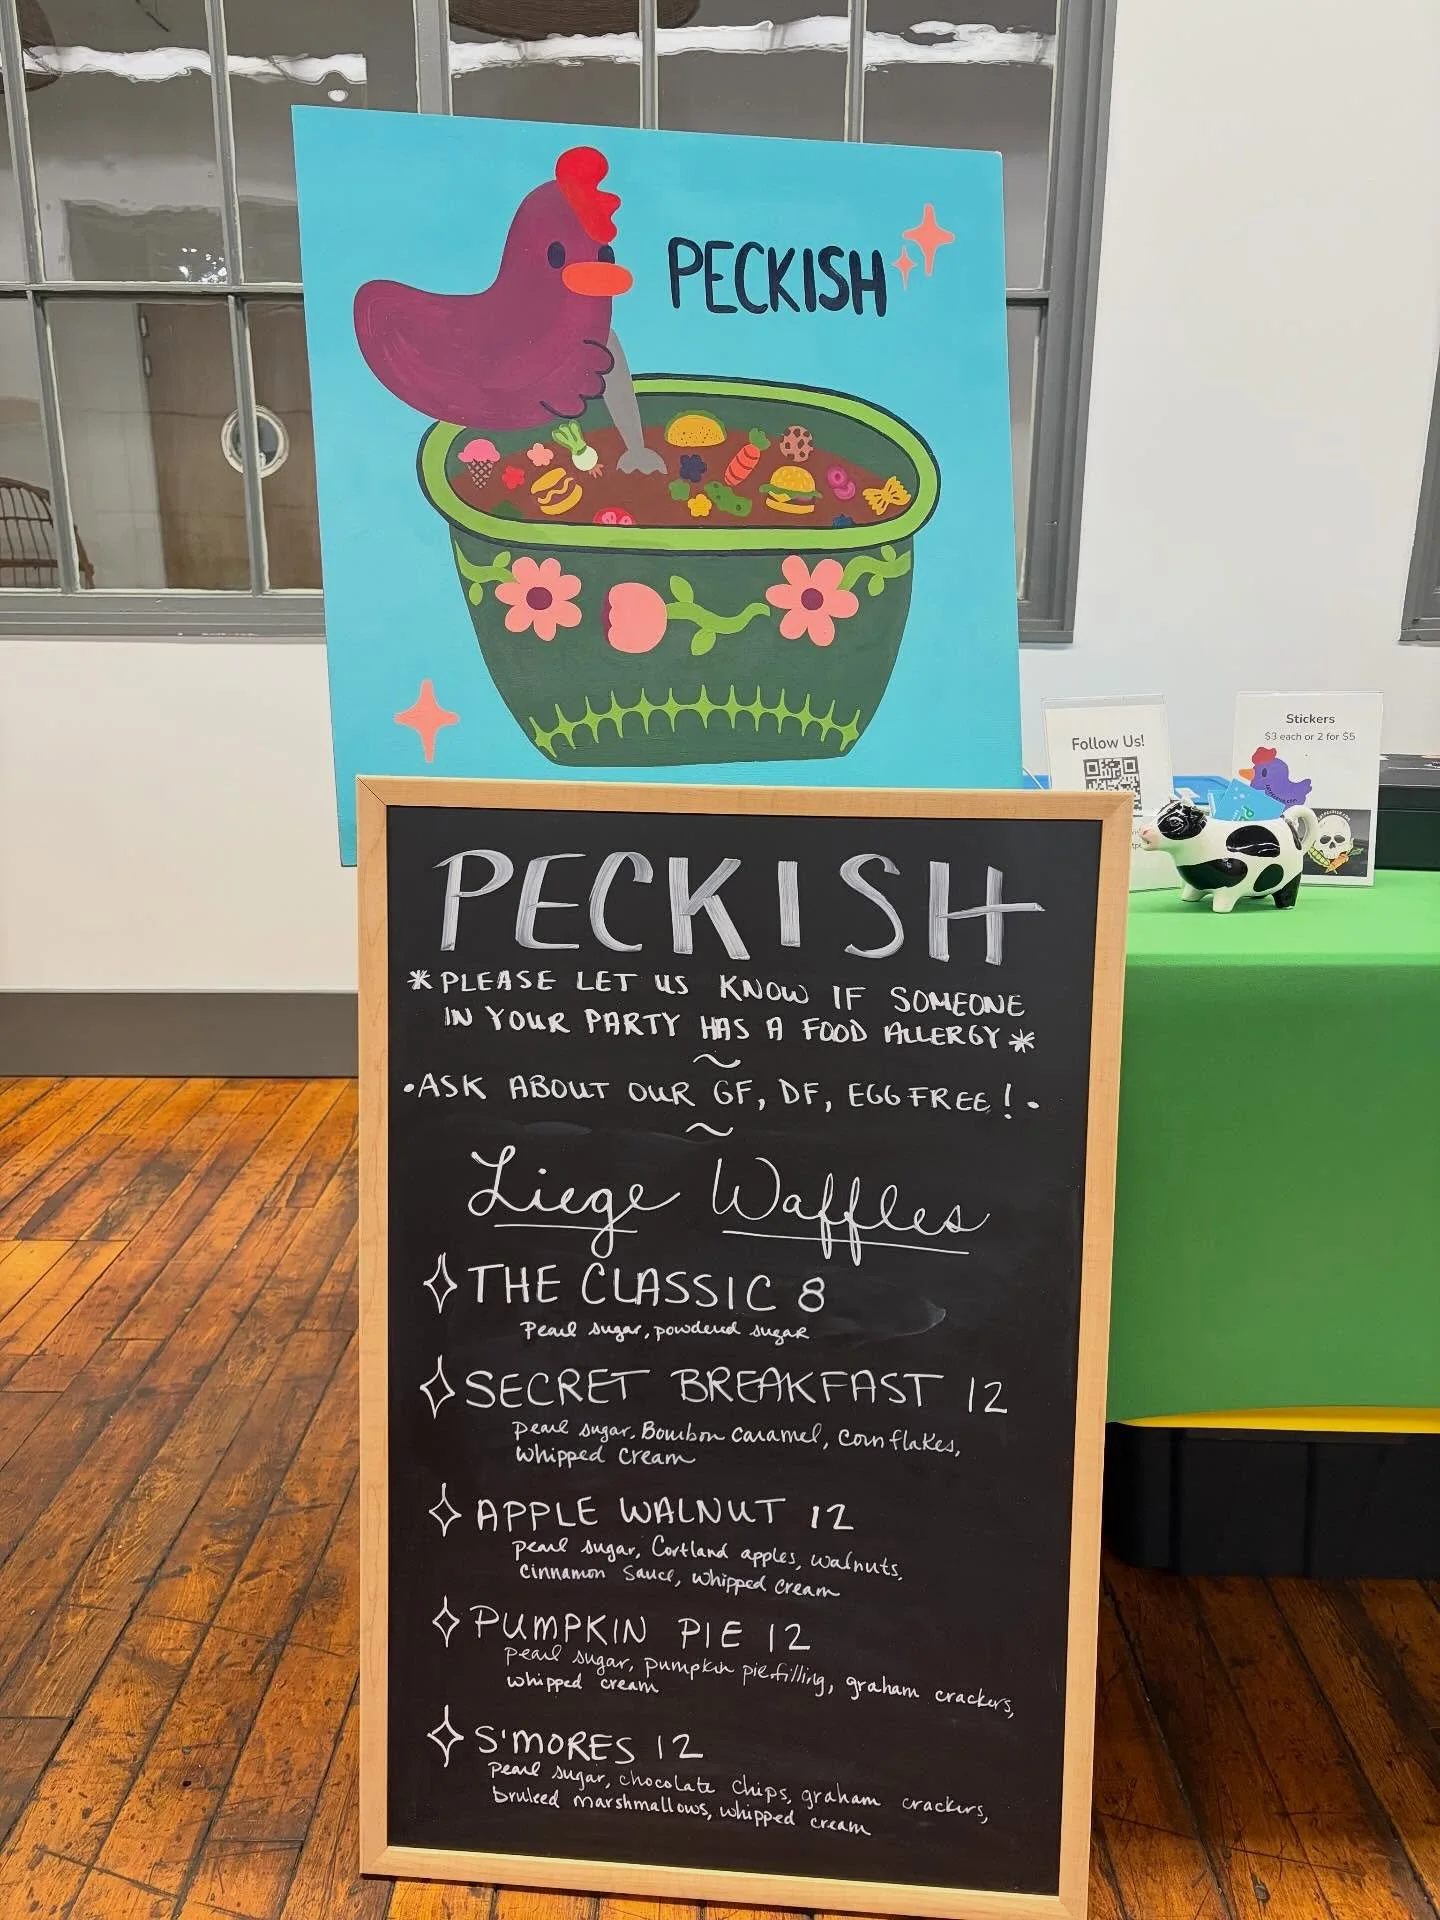 PECKISH
Follow Us!
Stickers
$3 each or 2 for $5
PECKISH
*PLEASE LET US KNOW IF SOMEONE
IN YOUR PARTY HAS A FOOD ALLERGY*
~
•ASK ABOUT OUR GF, DF, EGG FREE!•
~
Liege Waffles
THE CLASSIC 8
Pearl sugar, powdered sugar
SECRET BREAKFAST 12
pearl sugar, Bourbon caramel, corn flakes,
whipped cream
APPLE WALNUT 12
pearl sugar, Cortland apples, walnuts,
cinnamon sauce, whipped cream
PUMPKIN PIE 12
pearl sugar, pumpkin pie filling, graham crackers,
whipped cream
S'MORES 12
pearl sugar, chocolate chips, graham crackers,
bruleed marshmallows, whipped cream